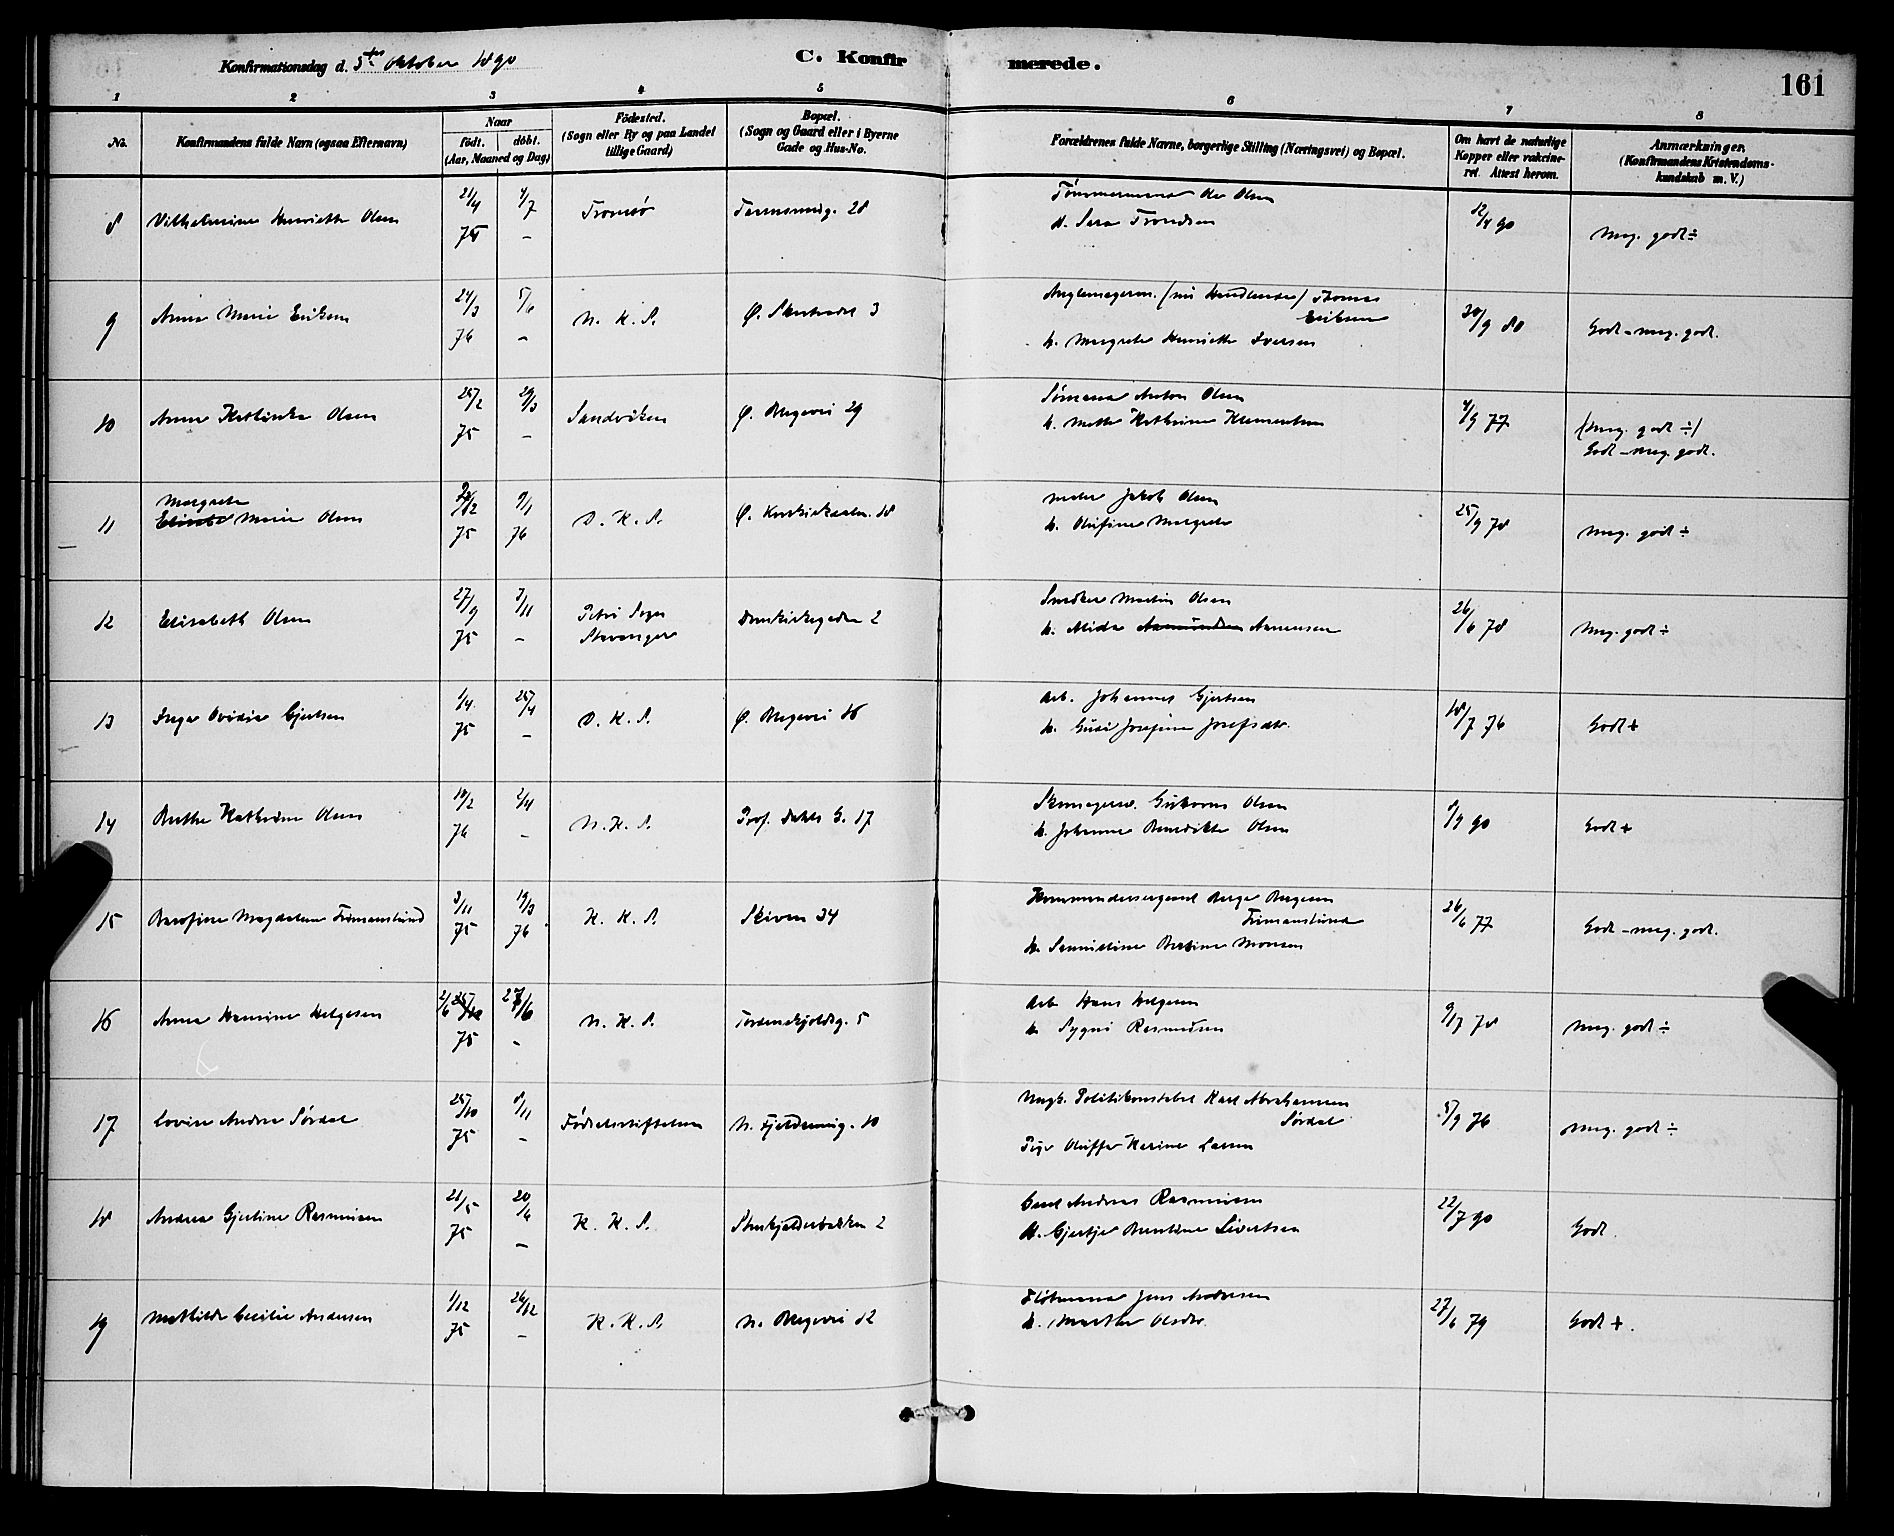 Konfirmationsdag d. 5te Oktober 1890
C. Konfirmerede.
161
1 2 3 4 5 6 7 8
No.
Konfirmandens fulde Navn (ogsaa Efternavn)
Naar
födt. döbt.
(Aar, Maaned og Dag)
Födested.
(Sogn eller By og paa Landet
tillige Gaard)
Bopæl.
(Sogn og Gaard eller i Byerne
Gade og Hus-No.
Forældrenes fulde Navne, borgerlige Stilling (Næringsvei) og Bopæl.
Om havt de naturlige
Kopper eller vakcine-
ret. Attest herom.
Anmærkninger.
(Konfirmandens Kristendoms-
kundskab m. V.)
8 Vilhelmine Henriette Olsen 21/4 75 4/7 – Tromsö 28 Tömmermand Ole Olsen
H. Sara Trondsen 12/4 90 Meg. godt ÷
9 Anna Marie Eriksen 24/3 76 5/6 – N. K. S. Ø. 3 (nu Handlende) Thomas
Eriksen
h. Margrete Henriette Iversen 30/9 80 Godt – meg. godt.
10 Anna Olsen 25/2 75 29/3 – Sandviken Ø. Blegevei 29 Sömand Anton Olsen
h. Mette Kathrine Klementsen 4/9 77 (Meg. godt ÷)
Godt – meg. godt.
11 Margrete
Marie Olsen /12 75 9/1 76 D. K. S. Ø. 18 Maler Jakob Olsen
h. Olufine Margrete 25/9 78 Meg. godt ÷
12 Elisabeth Olsen 27/9 75 7/11 – Petri Sogn
Stavanger Domkirkegaden 2 Snedker Martin Olsen
h. Alida Aamundsen Asmensen 26/6 78 Meg. godt ÷
13 Inga Ovidia Gjertsen 1/4 75 25/4 – D. K. S. Ø. Blegevei 16 Arb. Johannes Gjertsen
h. Guri Josefine Josefsdtr. 18/7 76 Godt +
14 Berthe Kathrine Olsen 19/2 76 2/4 – N. K. S. Prof. Dahls G. 17 Skomagersv. Olsen
h. Johanne Benedikte Olsen 9/9 90 Godt +
15 Magdalene 3/11 75 19/3 76 K. K. S. Skiven 34 Kommandersergeant Börge Börgesen
h. Bertine Monsen 26/6 77 Godt – meg. godt.
16 Anna Hansine Helgesen 2/6 25/10 75 27/6 – N. K. S. Tordenskjoldsg. 5 Arb. Hans Helgesen
h. Sygni Rasmusen 9/7 78 Meg. godt ÷
17 Lovise Andrea Sördal 25/10 75 8/11 – Födselsstiftelsen N. Fjeldsmug. 10 Ungk. Politikonstabel Karl Abrahamsen
Sördal
Pige Oluffa Karine Larsen 5/9 76 Meg. godt ÷
18 Andrea Gjertine Rasmusen 21/5 75 20/6 – K. K. S. Storkjelderbakken 2 Andreas Rasmusen
h. Gjertje Berntine Sivertsen 22/7 90 Godt.
19 Mathilde Cecilie Andersen 1/12 75 26/12 – K. K. S. N. Blegevei 12 Flötmand Jens Andersen
h. Marthe Olsdtr. 27/6 79 Godt +.